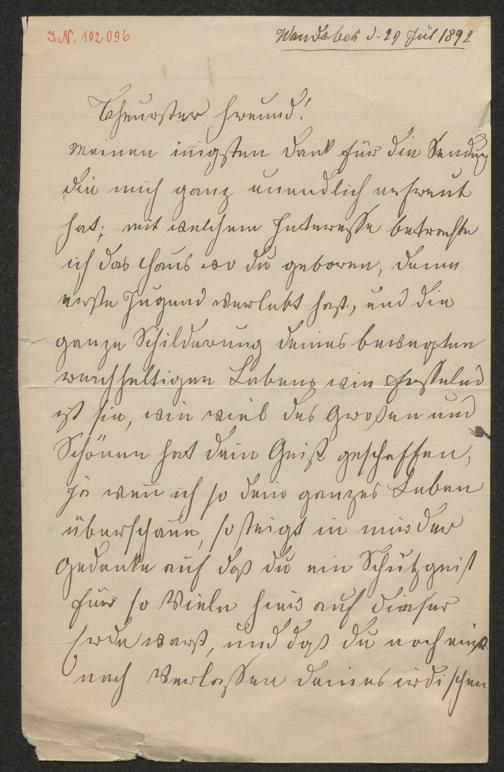 I.N. 102096
Wandsbek d. 29 Jul 1892
Theurster Freund!
Meinen inigsten Dank für die Sendung
die mich ganz unendlich erfreut
hat; mit welchem Interesse betrachte
ich das Haus wo du geboren, deine
erste Jugend verlebt hast, und die
ganze Schilderung deines bewegten
reichhaltigen Lebens wie fesselnd
ist sie, wie viel des Großen und
Schönen hat dein Geist geschaffen,
ja wen ich so dein ganzes Leben
überschaue, so steigt in mir der
Gedanke auf daß du ein Schutzgeist
für so Viele hier auf dieser
Erde warst, und daß du noch einst
nach Verlassen deines irdischen